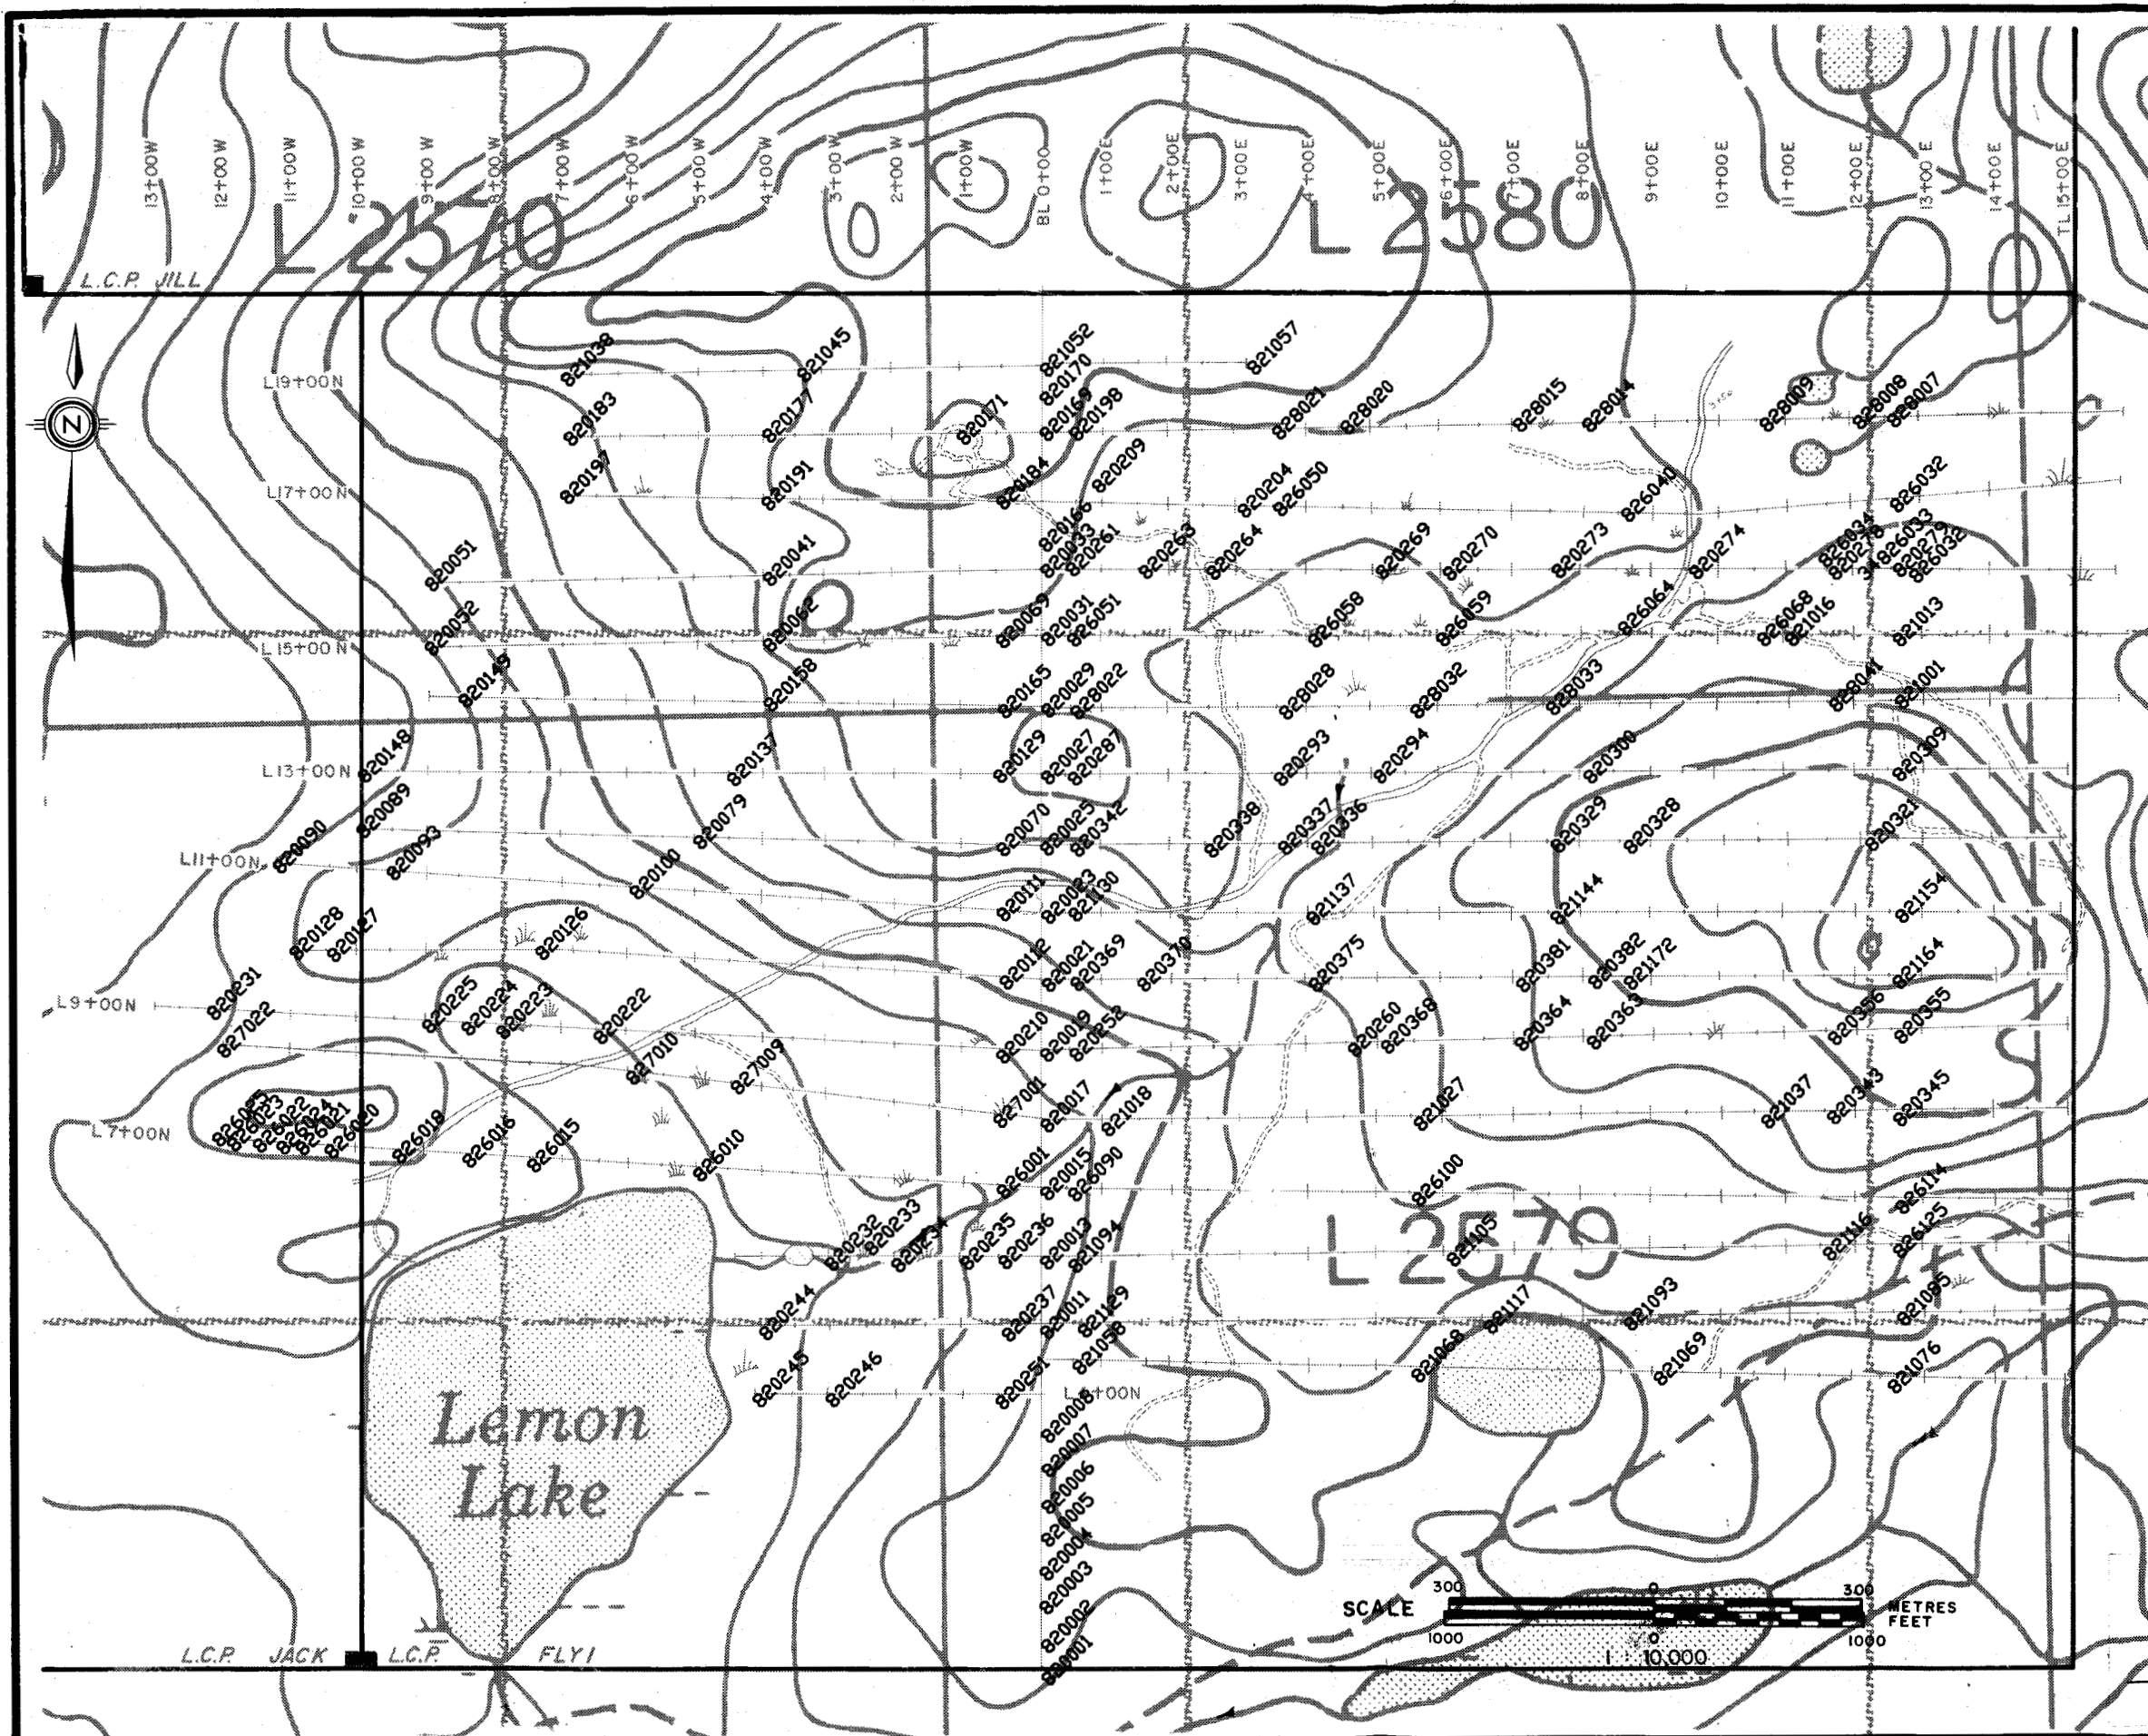 13+00W
12+00W
11+00W
10+00W
9+00W
8+00W
7+00W
6+00W
5+00W
4+00W
3+00W
2+00W
1+00W
BL 0+00
1+00E
2+00E
3+00E
4+00E
5+00E
6+00E
7+00E
8+00E
9+00E
10+00E
11+00E
12+00E
13+00E
14+00E
TL 15+00E
L 2580
L.C.P. JILL
N
821038
821045
821052
821057
820170
L19+00N
820183
820177
820171
820169
820198
828021
828020
828015
828014
828009
828008
828007
L17+00N
820197
820191
820184
820209
820204
826050
826040
826032
820166
820051
820041
820033
820261
820263
820264
820269
820270
820273
820274
826034
820278
826033
820279
826032
L15+00N
820052
820062
820069
820031
826051
826058
826059
826064
826068
821016
821013
820149
820158
820165
820029
828022
828028
828032
828033
828041
821001
L13+00N
820148
820137
820129
820027
820287
820293
820294
820300
820309
L11+00N
820090
820089
820093
820079
820070
820025
820342
820338
820337
820336
820329
820328
820321
820100
820111
820023
821130
821137
821144
821154
820128
820127
820126
820112
820021
820369
820370
820375
820381
820382
821172
821164
L9+00N
820231
827022
820225
820224
820223
820222
820210
820019
820252
820260
820368
820364
820363
820356
820355
827010
827009
827001
820017
821018
821027
821037
820343
820345
L7+00N
826025
826023
826022
826024
826021
826020
826018
826016
826015
826010
826001
820015
826090
826100
826114
L 2579
820232
820233
820234
820235
820236
820013
821094
821105
821116
826125
820244
820237
820011
821129
821117
821093
821085
820245
820246
820251
821058
821068
821069
821076
820008
820007
820006
820005
820004
820003
820002
820001
Lemon
Lake
SCALE
300 0 300
METRES
FEET
1000 0 1000
1 : 10,000
L.C.P. JACK
L.C.P. FLY 1